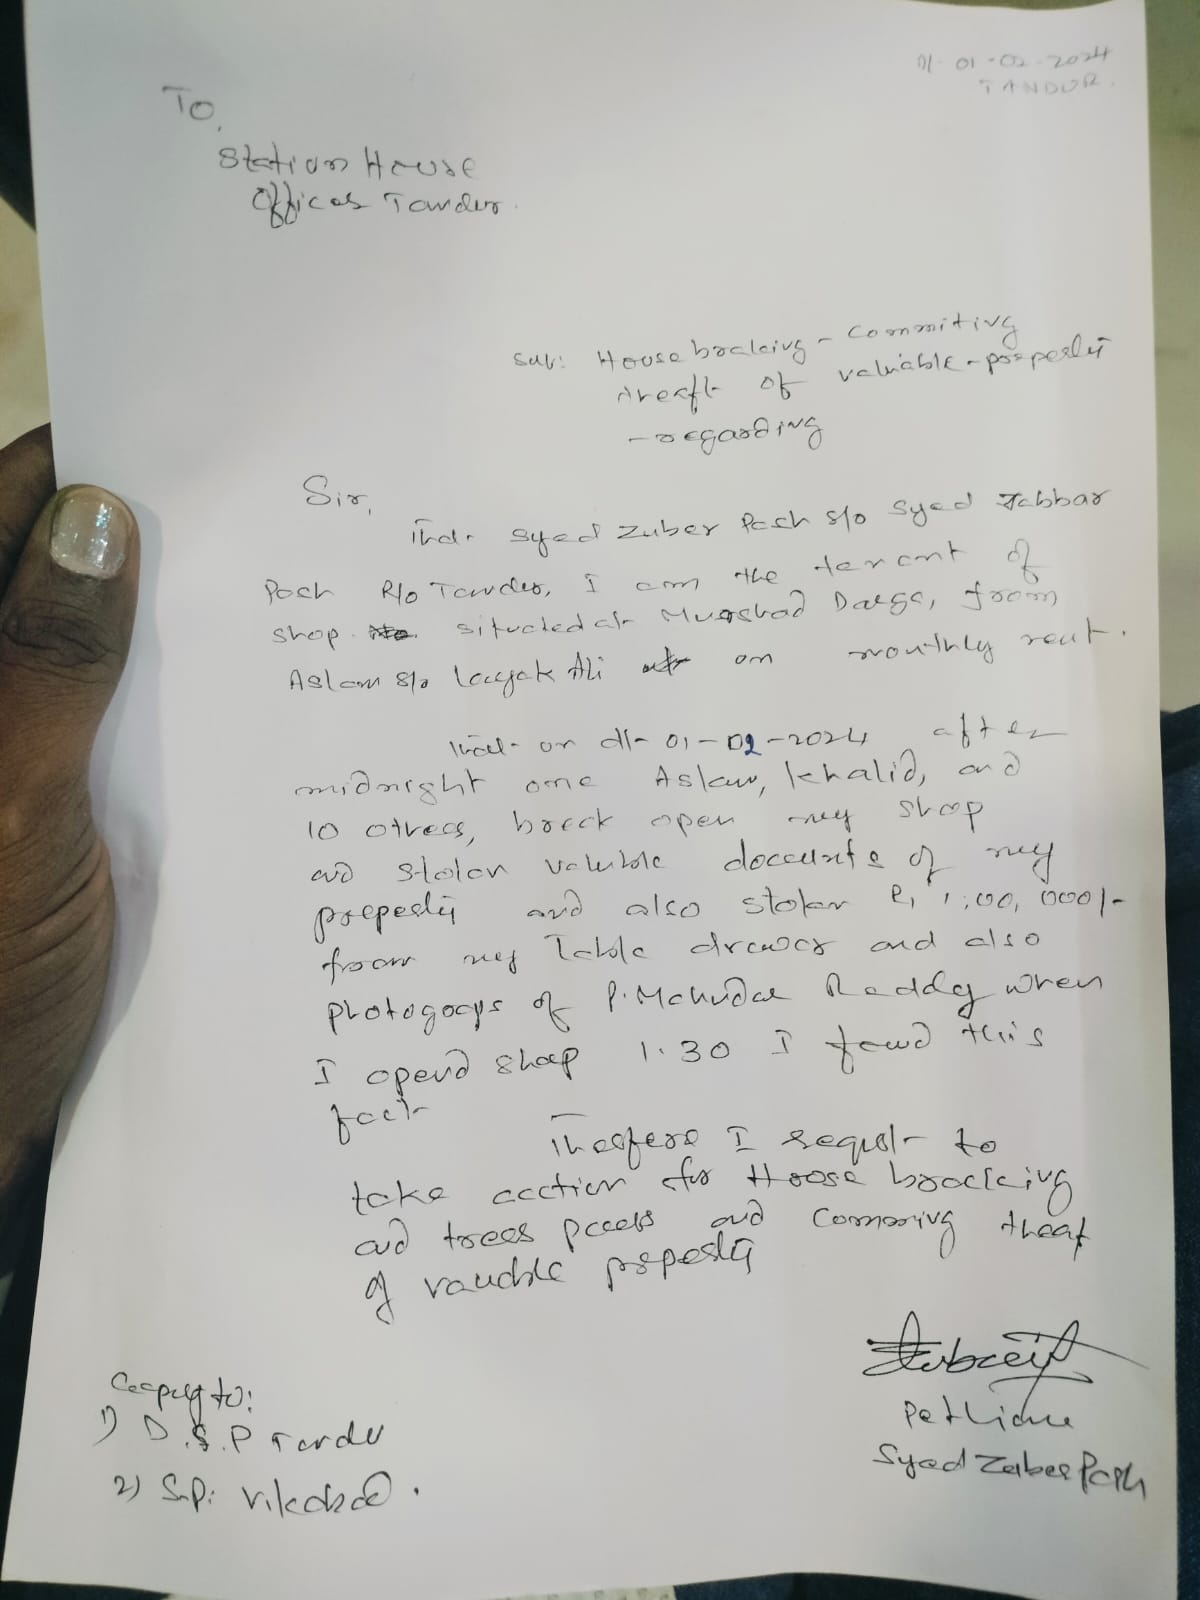 Dt- 01-02-2024
TANDUR.
To,
Station House
Officer Tandur.
Sub: House breaking - Commiting
theaft of valuable - property
- regarding
Sir,
That Syed Zuber Pash S/o Syed Jabbar
Pash R/o Tandur, I am the tenant of
shop situated at Murshad Darga, from
Aslam S/o Layak Ali on monthly rent.
That on dt- 01-02-2024 after
midnight one Aslam, Khalid, and
10 others, break open my shop
and stolen valuble documents of my
property and also stolen Rs 1,00,000/-
from my Table drawer and also
photogocps of P. Mahudar Reddy when
I opend shop 1.30 I found this
fact
Therfore I requst to
take acction for House breacking
and trees pass and Comming theaf
of valuble property
Petitione
Syed Zuber Pash
Coppy to:
1) D.S.P Tandur
2) S.P: Vikabad.